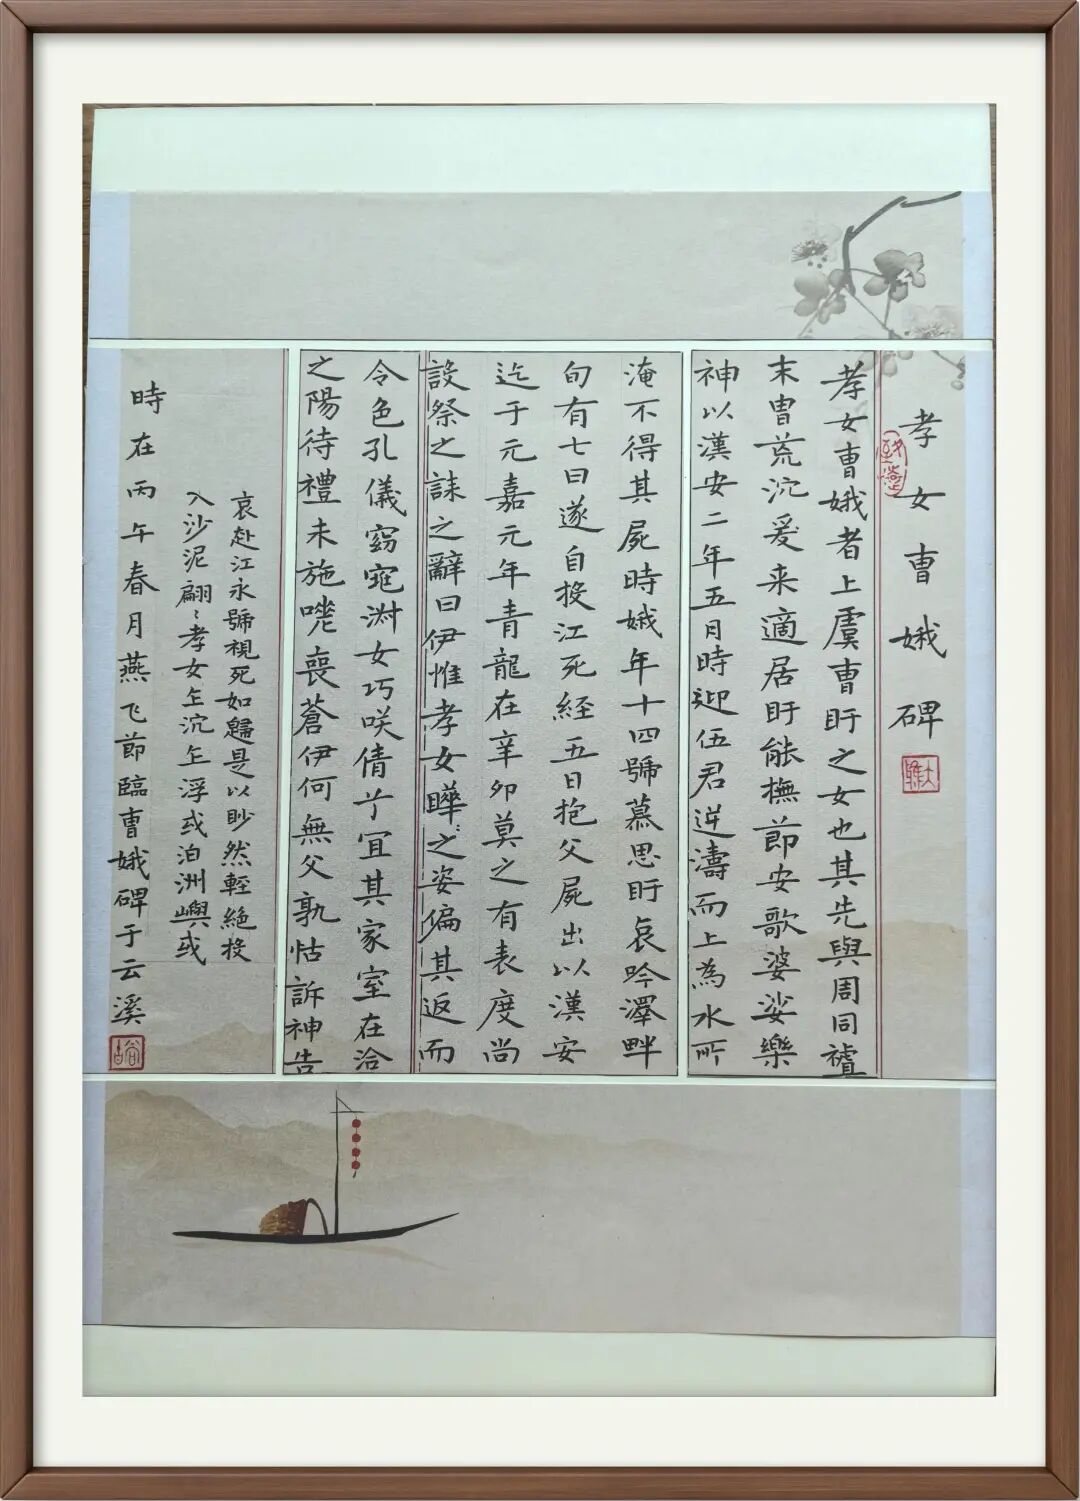 孝女曺娥碑
孝女曺娥者上虞曺盱之女也其先與周同禇
末冑荒沉爰来適居盱能撫節安歌婆娑樂
神以漢安二年五月時迎伍君逆濤而上為水所
淹不得其屍時娥年十四號慕思盱哀吟澤畔
旬有七日遂自投江死経五日抱父屍出以漢安
迄于元嘉元年青龍在辛卯莫之有表度尚
設祭之誄之辭曰伊惟孝女曄〻之姿偏其返而
令色孔儀窈窕淑女巧咲倩兮宜其家室在洽
之陽待禮未施嗟喪蒼伊何無父孰怙訴神告
哀赴江永號視死如歸是以眇然輕絕投
入沙泥翩〻孝女乍沉乍浮或泊洲嶼或
時在丙午春月燕飞節臨曺娥碑于云溪